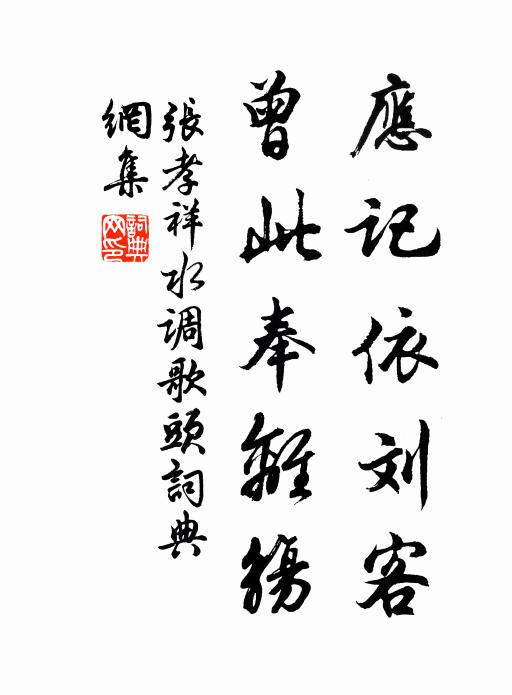 應記依刘客
曾此奉離觴
張孝祥水调歌頭詞典
網集
詞典
网印